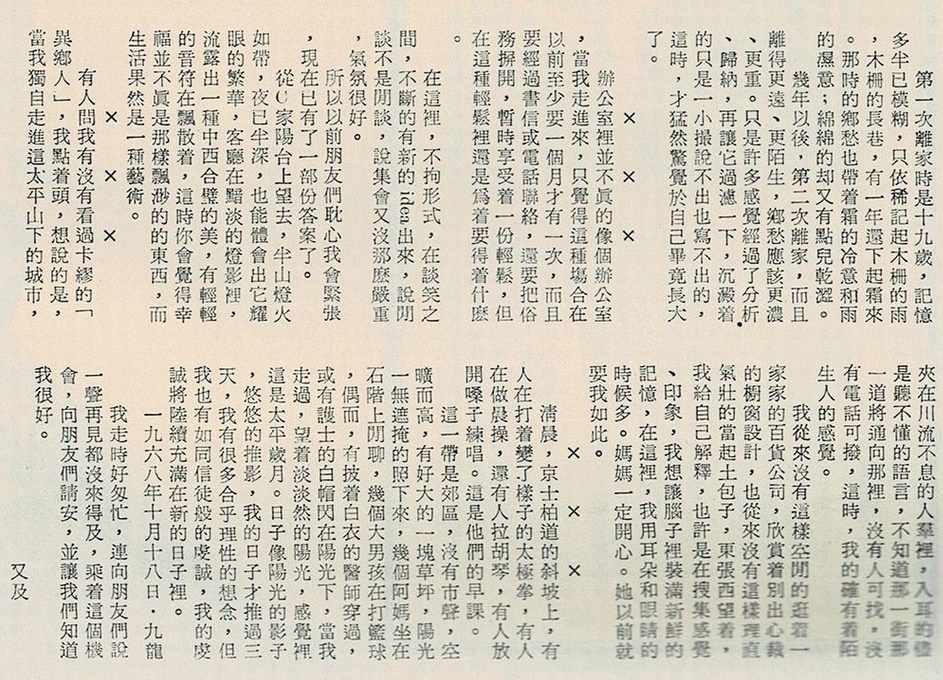 第一次離家時是十九歲，記憶
多半已模糊，只依稀記起木柵的雨
，木柵的長巷，有一年還下起霜來
。那時的鄉愁也帶着霜的冷意和雨
的濕意；綿綿的却又有點兒乾澀。
幾年以後，第二次離家，而且
離得更遠、更陌生，鄉愁應該更濃
、更重。只是許多感覺經過了分析
、歸納，再讓它過濾一下，沉澱着
的只是一小撮說不出也寫不出的，
這時，才猛然驚覺於自己畢竟長大
了。
× × ×
辦公室裡並不眞的像個辦公室
，當我走進來，只覺得這種場合在
以前至少要一個月才有一次，而且
要經過書信或電話聯絡，還要把俗
務摒開，暫時享受着一份輕鬆，但
在這種輕鬆裡還是爲着要得着什麽
。
在這裡，不拘形式，在談笑之
間，不斷的有新的idea出來，說閒
談不是閒談，說集會又沒那麽嚴重
，氣氛很好。
所以以前朋友們躭心我會緊張
，現在已有了一部份答案了。
從C家陽台上望去，半山燈火
如帶，夜已半深，也能體會出它耀
眼的繁華，客廳在黯淡的燈影裡，
流露出一種中西合璧的美，有輕輕
的音符在飄散着，這時你會覺得幸
福並不眞是那樣飄渺的東西，而
生活果然是一種藝術。
× × ×
有人問我有沒有看過卡繆的「
異鄉人」，我點着頭，想說的是，
當我獨自走進這太平山下的城市，
夾在川流不息的人羣裡，入耳的儘
是聽不懂的語言，不知道那一街那
一道將通向那裡，沒有人可找，沒
有電話可撥，這時，我的確有着陌
生人的感覺。
我從來沒有這樣空閒的逛着一
家家的百貨公司，欣賞着別出心裁
的櫥窗設計，也從來沒有這樣理直
氣壯的當起土包子，東張西望着，
我給自己解釋，也許是在搜集感覺
、印象，我想讓腦子裡裝滿新鮮的
記憶，在這裡，我用耳朶和眼睛的
時候多。媽媽一定開心。她以前就
要我如此。
× × ×
淸晨，京士柏道的斜坡上，有
人在打着變了樣子的太極拳，有人
在做晨操，還有人拉胡琴，有人放
開嗓子練唱。這是他們的早課。
這一帶是郊區，沒有市聲，空
曠而高，有好大的一塊草坪，陽光
一無遮掩的照下來，幾個阿媽坐在
石階上閒聊，幾個大男孩在打籃球
，偶而，有披着白衣的醫師穿過，
或有護士的白帽閃在陽光下，當我
走過，望着淡淡的陽光，感覺裡
這是太平歲月。日子像陽光的影子
，悠悠的推影，我的日子才推過三
天，我有很多合乎理性的想念，但
我也有如同信徒般的虔誠，我的虔
誠將陸續充滿在新的日子裡。
一九六八年十月十八日．九龍
我走時好匆忙，連向朋友們說
一聲再見都沒來得及，乘着這個機
會，向朋友們請安，並讓我們知道
我很好。
又及